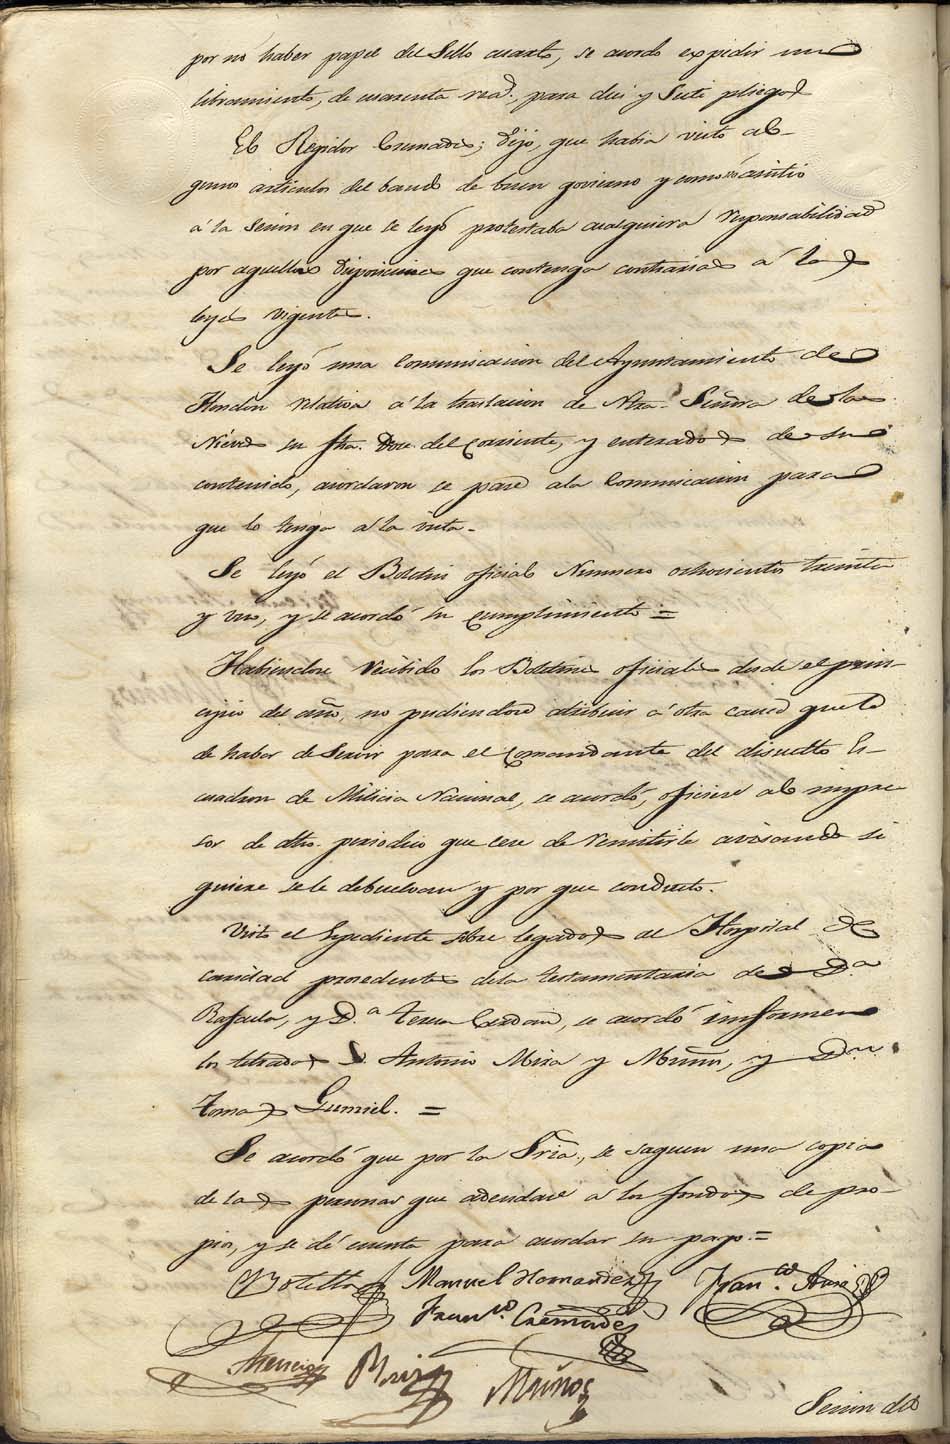 por no haber papel del Sello cuarto, se acordo expedir un
libramiento, de cuarenta rea.s, para diez y Siete pliegos
El Regidor Cremades; Dijo, que habia visto al-
gunos articulos del bando de buen govierno y como no asistió
á la Sesion en que se leyó protestaba cualquiera responsabilidad
por aquellas Disposiciones que contenga contrarias á las
leyes vigentes.
Se leyó una comunicacion del Ayuntamiento de
Hondon relativa á la traslacion de Ntra. Señora de las
Nieves su fha. Doce del Corriente, y enterados de su
contenido, acordaron se pase a la Comunicacion para
que lo tenga á la vista.
Se leyó el Boletin oficial Numero ochocientos treinta
y uno, y se acordó su cumplimiento =
Habiendose recibido los Boletines oficiales desde el prin-
cipio del año, no pudiendose atribuir á otra causa que la
de haber de Servir para el Comandante del disuelto Es-
cuadron de Milicia Nacional, se acordó, oficiese al impre-
sor de dho. periodico que cese de remitirle avisando si
quiere se le debuelvan y por que conducto.
Visto el Espediente sobre legados al Hospital de
caridad procedentes de la testamentaria de D.a
Rafaela, y D.a Teresa, se acordó informen
los letrados D. Antonio Mira y Muños, y Dn.
Tomas Gumiel. =
Se acordó que por la Sria., se saquen una copia
de las personas que adeudare á los fondos de pro-
pios, y se dé cuenta para acordar su pago. =
Botella Manuel Hernandez Fran.co
Fran.co Cremades
Asencio Ruiz Muños
Sesion del